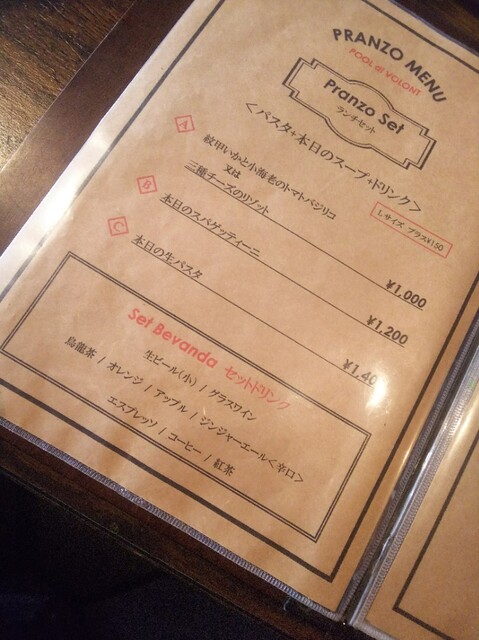 PRANZO MENU
POOL di VOLONT
Pranzo Set
ランチセット
<パスタ+本日のスープ+ドリンク>
Lサイズ プラス¥150
A
紋甲いかと小海老のトマトバジリコ
又は
三種チーズのリゾット
¥1,000
B
本日のスパゲッティーニ
¥1,200
C
本日の生パスタ
¥1,40
Set Bevanda セットドリンク
生ビール(小) / グラスワイン
烏龍茶 / オレンジ / アップル / ジンジャーエール<辛口>
エスプレッソ / コーヒー / 紅茶